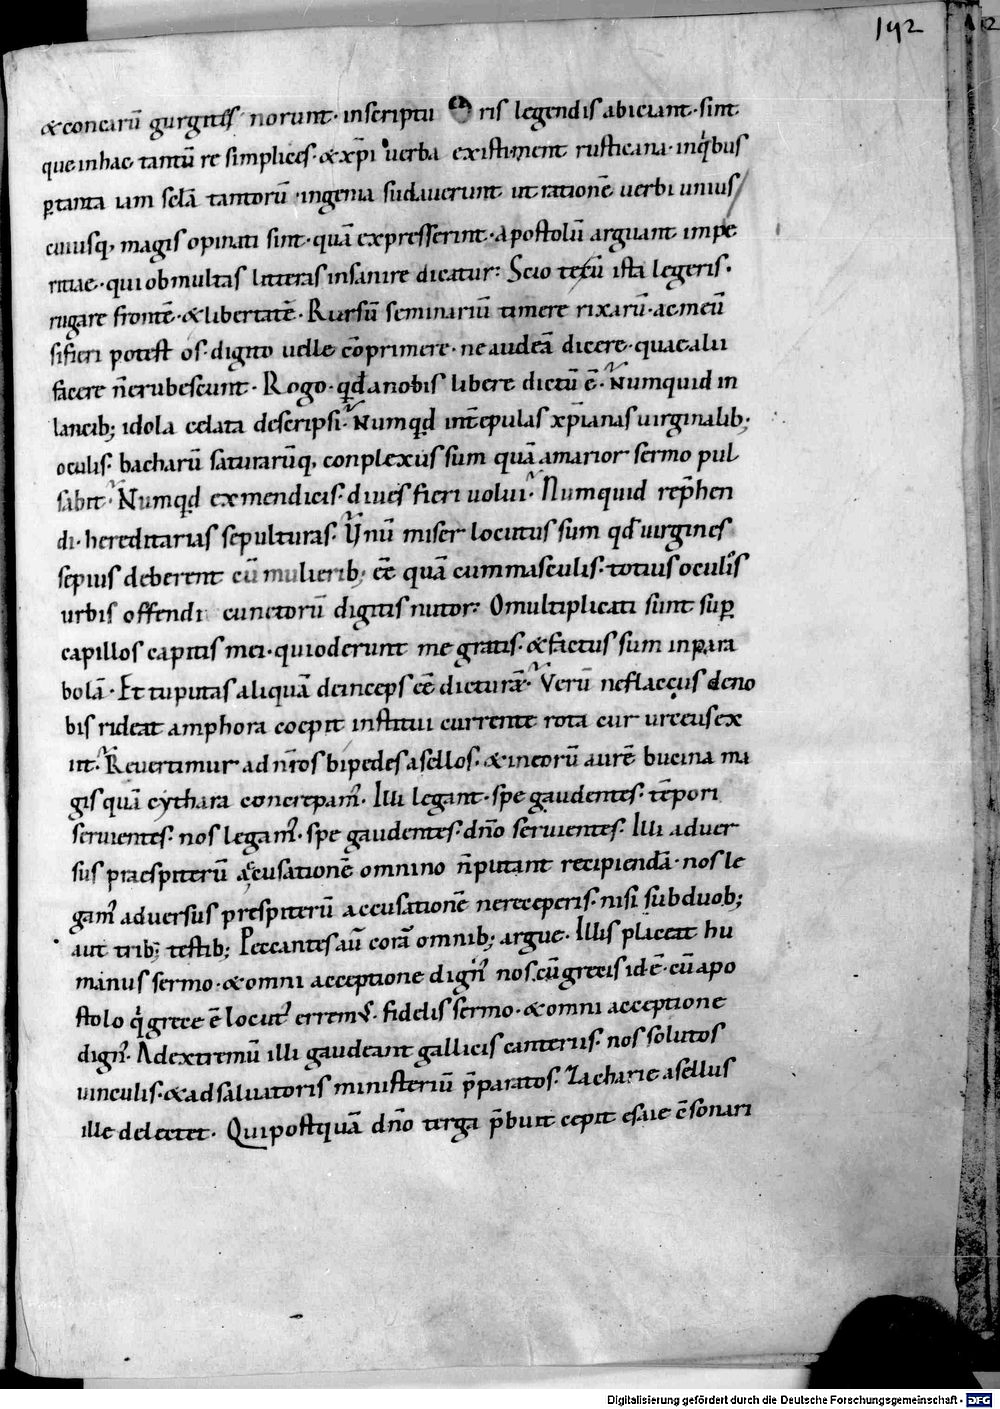 192
&concarū gurgites norunt· inscriptu ris legendis abiciant· sint
que inhac tantū re simplices· &xp̄i verba existiment rusticana· inqͥbus
ꝑtanta iam sc̄la tantorū ·ingenia sudauerunt ut rationē uerbi unius
cuiusq, magis opinati sint· quā expresserint· apostolū arguant impe
ritiae· qui obmultas litteras insanire dicatur: Scio te cū ista legeris·
rugare frontē· &libertatē· Rursū seminariū timere rixarū· ac meū
sifieri potest os· digito uelle cōprimere· ne audeā dicere· quae alii
facere n̄erubescunt· Rogo· qđ anobis libere dictū ē· Numquid in
lancib; idola celata descripsi· Numqđ int̄epulas xp̄ianas uirginalib;
oculis· bacharū saturarūq, conplexus sum quā amarior sermo pul
sabit· Numqđ exmendicis· diues fieri uolui· Numquid rep̄hen
di· hereditarias sepulturas· Vnū miser locutus sum qđ uirgines
sepius deberent cū mulierib; eē quā cummasculis· totius oculos
urbis offendi cunctorū digitis nutor: O multiplicati sunt suꝑ
capillos capitis mei· quioderunt me gratis· &factus sum inpara
bolā· Et tu putas aliquā deinceps eē dicturā· Verū ne flaccus deno
bis rideat amphora coepit institui currente rota cur urceus ex
iit· Reuertimur ad nr̄os bipedes asellos· &ineorū aurē bucina ma
gis quā cythara concrepam᾽· Illi legant· spe gaudentes· tēpori
seruientes· nos legam᾽· spe gaudentes· dn̄o seruientes· Illi aduer
sus praespiterū accusationē omnino n̄putant recipiendā· nos le
gam᾽ aduersus prespiterū accusationē nereceperis· nisi sub duob;
aut trib; testib; Peccantes aū corā omnib; argue· Illis placeat hu
manus sermo· &omni acceptione dign᾽ nos cū grecis id ē· cū apo
stolo qͥ grece ē locut᾽ errem᾽· fidelis sermo· &omni acceptione
dign᾽· Adextremū illi gaudeant gallicis canteriis· nos solutos
uinculis· &ad saluatoris ministeriū p̄paratos· Zacharie asellus
ille delectet· Qui postquā dn̄o terga p̄buit cepit esaie c̄sonari
Digitalisierung gefördert durch die Deutsche Forschungsgemeinschaft - DFG